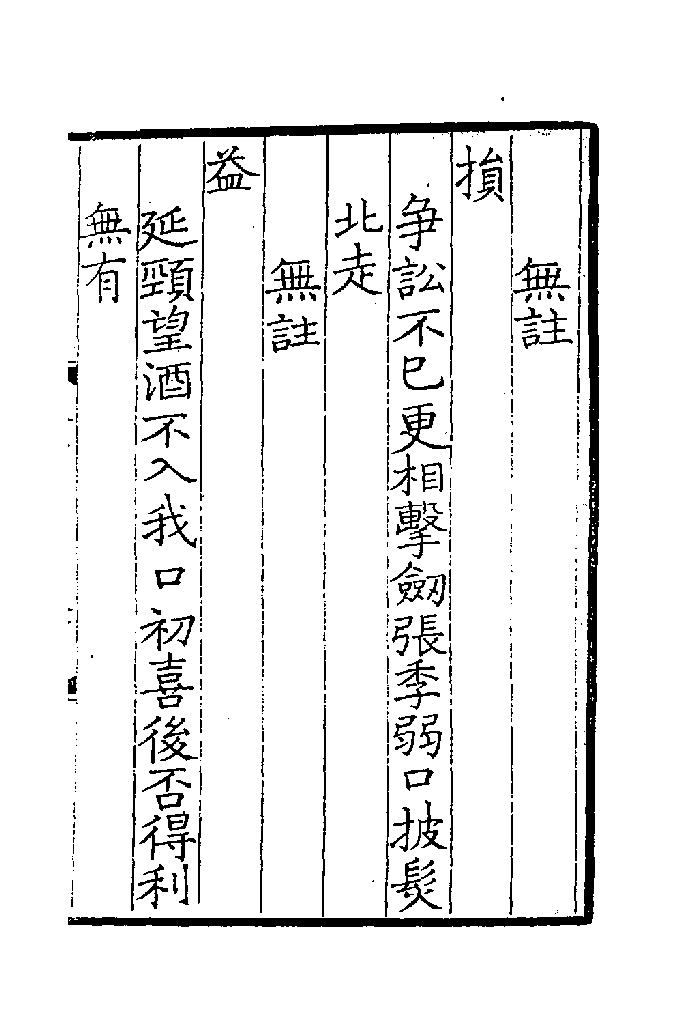 無註
損
爭訟不已更相擊劔張季弱口披髮
北走
無註
益
延頸望酒不入我口初喜後否得利
無有